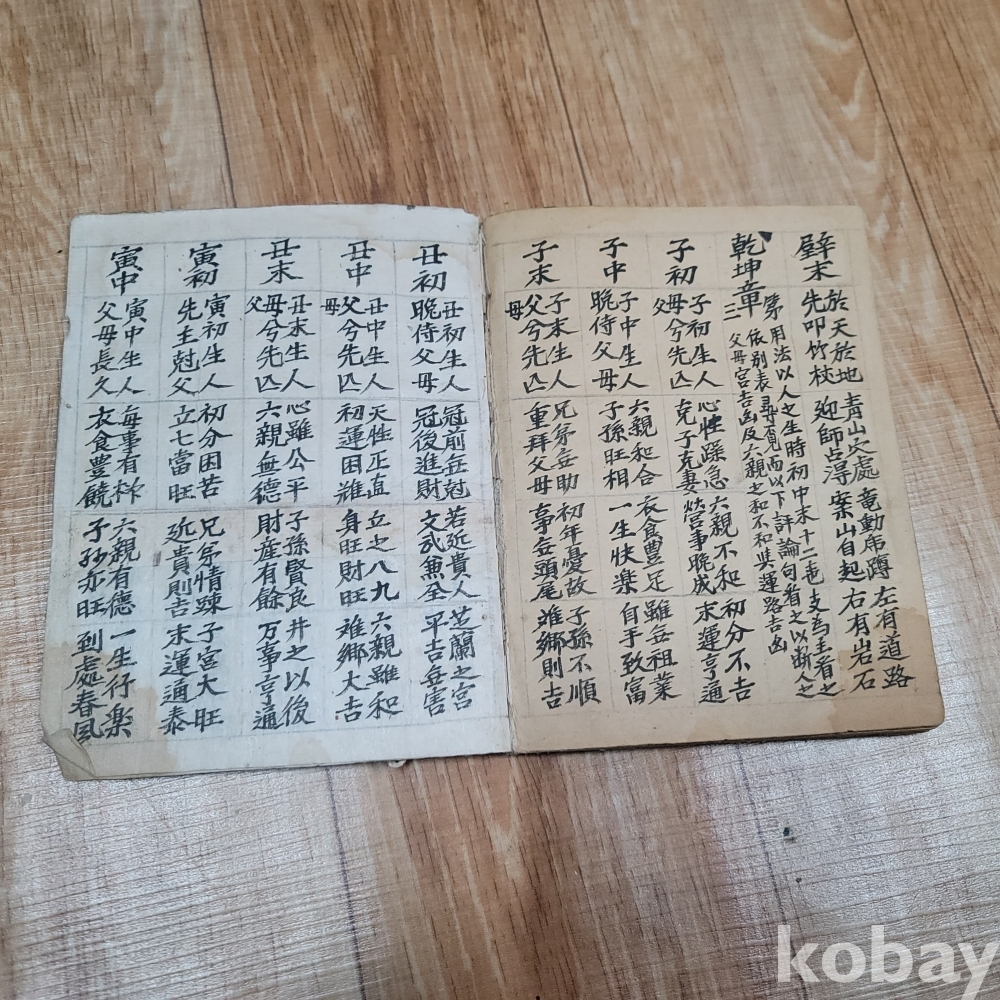 壁末
於天於地 青山穴處 竜動虎蹲 左有道路
先叩竹枝 迎師占得 案山自起 右有岩石
乾坤章
用法以人之生時初中末十二 支為主看之
依別表尋覓而以下評論句看之以断人之
父母宮吉凶及六親之和不和與運路吉凶
子初
子初生人 心性躁急 六親不和 初分不吉
父母兮先亡 克子克妻 營事晩成 末運亨通
子中
子中生人 六親和合 衣食豊足 雖無祖業
晩侍父母 子孫旺相 一生快樂 自手致富
子末
子末生人 兄弟無助 初年憂故 子孫不順
父母兮先亡 重拜父母 事無頭尾 離鄉則吉
丑初
丑初生人 冠前無尅 若近貴人 芝蘭之宮
晩侍父母 冠後進財 文武兼全 平吉無害
丑中
丑中生人 天性正直 立之八九 六親雖和
父母兮先亡 初運困難 身旺財旺 離鄉大吉
丑末
丑末生人 心雖公平 子孫賢良 井之以後
父母兮先亡 六親無德 財産有餘 万事亨通
寅初
寅初生人 初分困苦 兄弟情疎 子宮大旺
先主尅父 立七當旺 近貴則吉 末運通泰
寅中
寅中生人 每事有 六親有德 一生行樂
父母長久 衣食豊饒 子 亦旺 到處春風
kobay